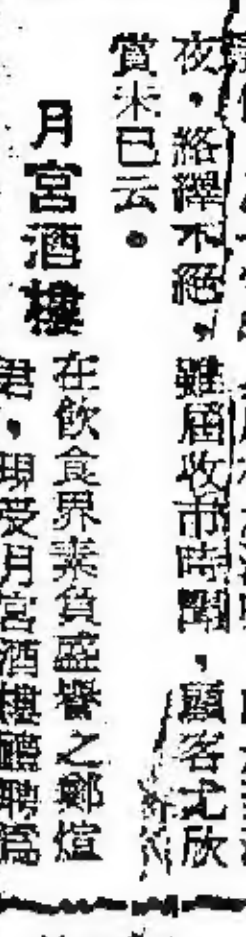 夜，絡繹不絕，雖屆收市時間，顧客尤欣
賞未已云。
月宮酒樓
在飲食界素負盛譽之鄭煊
君，現受月宮酒樓禮聘爲